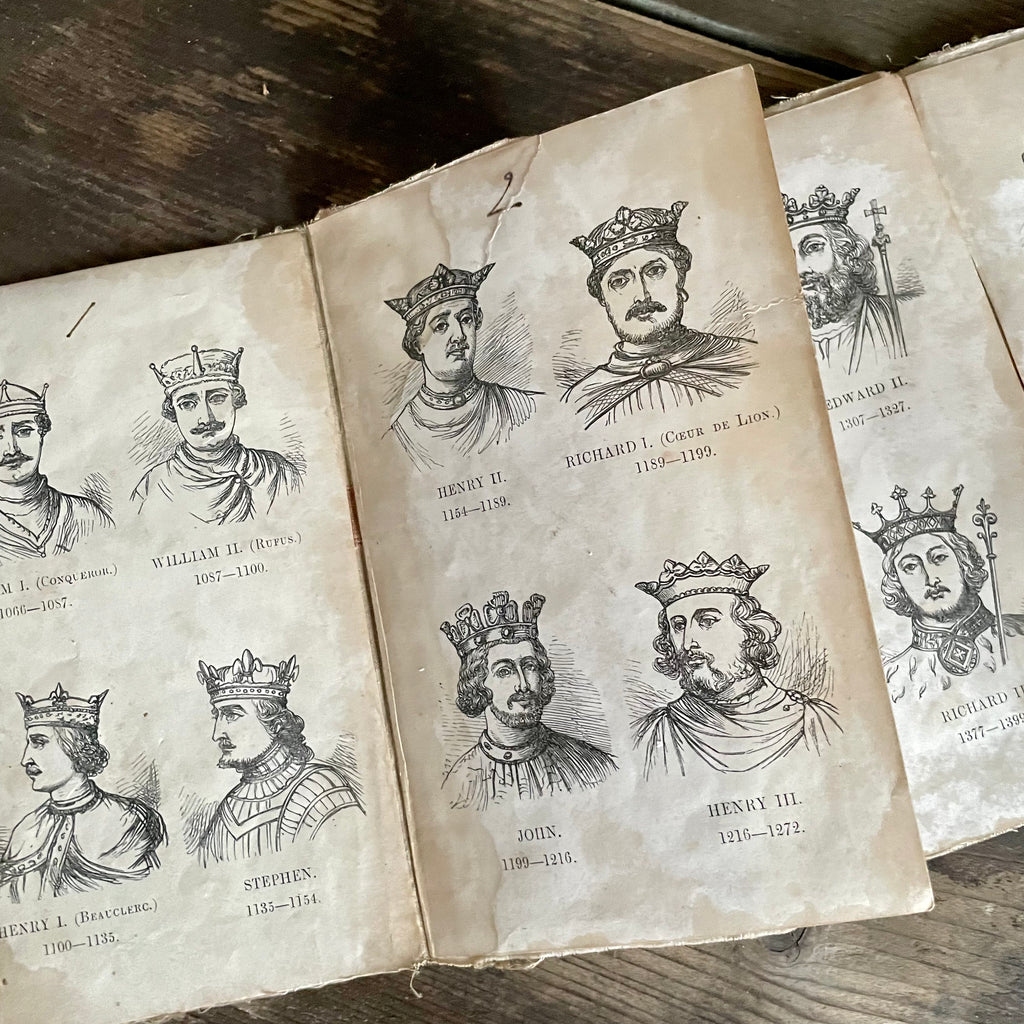 M I. (Conqueror.)
1066—1087.
WILLIAM II. (Rufus.)
1087—1100.
HENRY I. (Beauclerc.)
1100—1135.
STEPHEN.
1135—1154.
2
HENRY II.
1154—1189.
RICHARD I. (Cœur de Lion.)
1189—1199.
JOHN.
1199—1216.
HENRY III.
1216—1272.
EDWARD II.
1307—1327.
RICHARD II
1377—1399